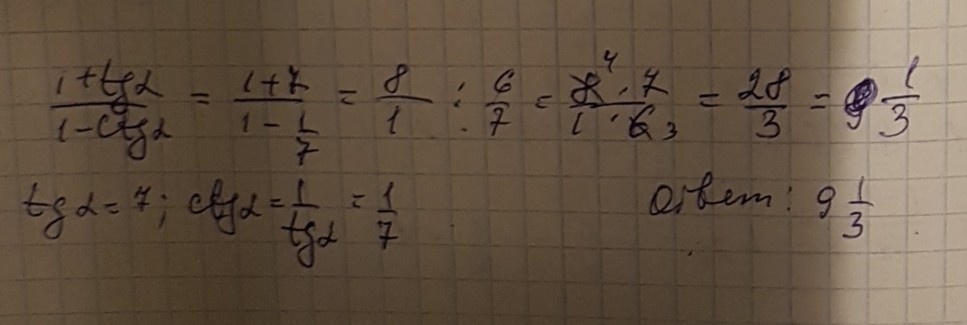 (1+tgα)/(1-ctgα) = (1+7)/(1-1/7) = 8/1 : 6/7 = (8⁴·7)/(1·6₃) = 28/3 = 9 1/3
tgα=7; ctgα=1/tgα=1/7 Ответ: 9 1/3